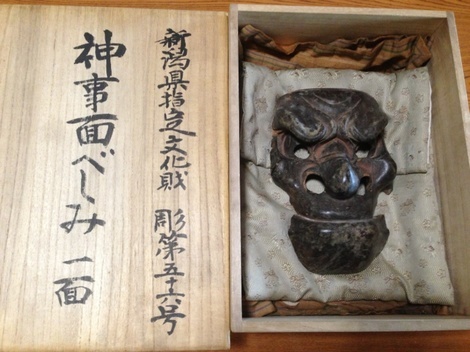 新潟県指定文化財 彫第五十六号
神事面べしみ 一面